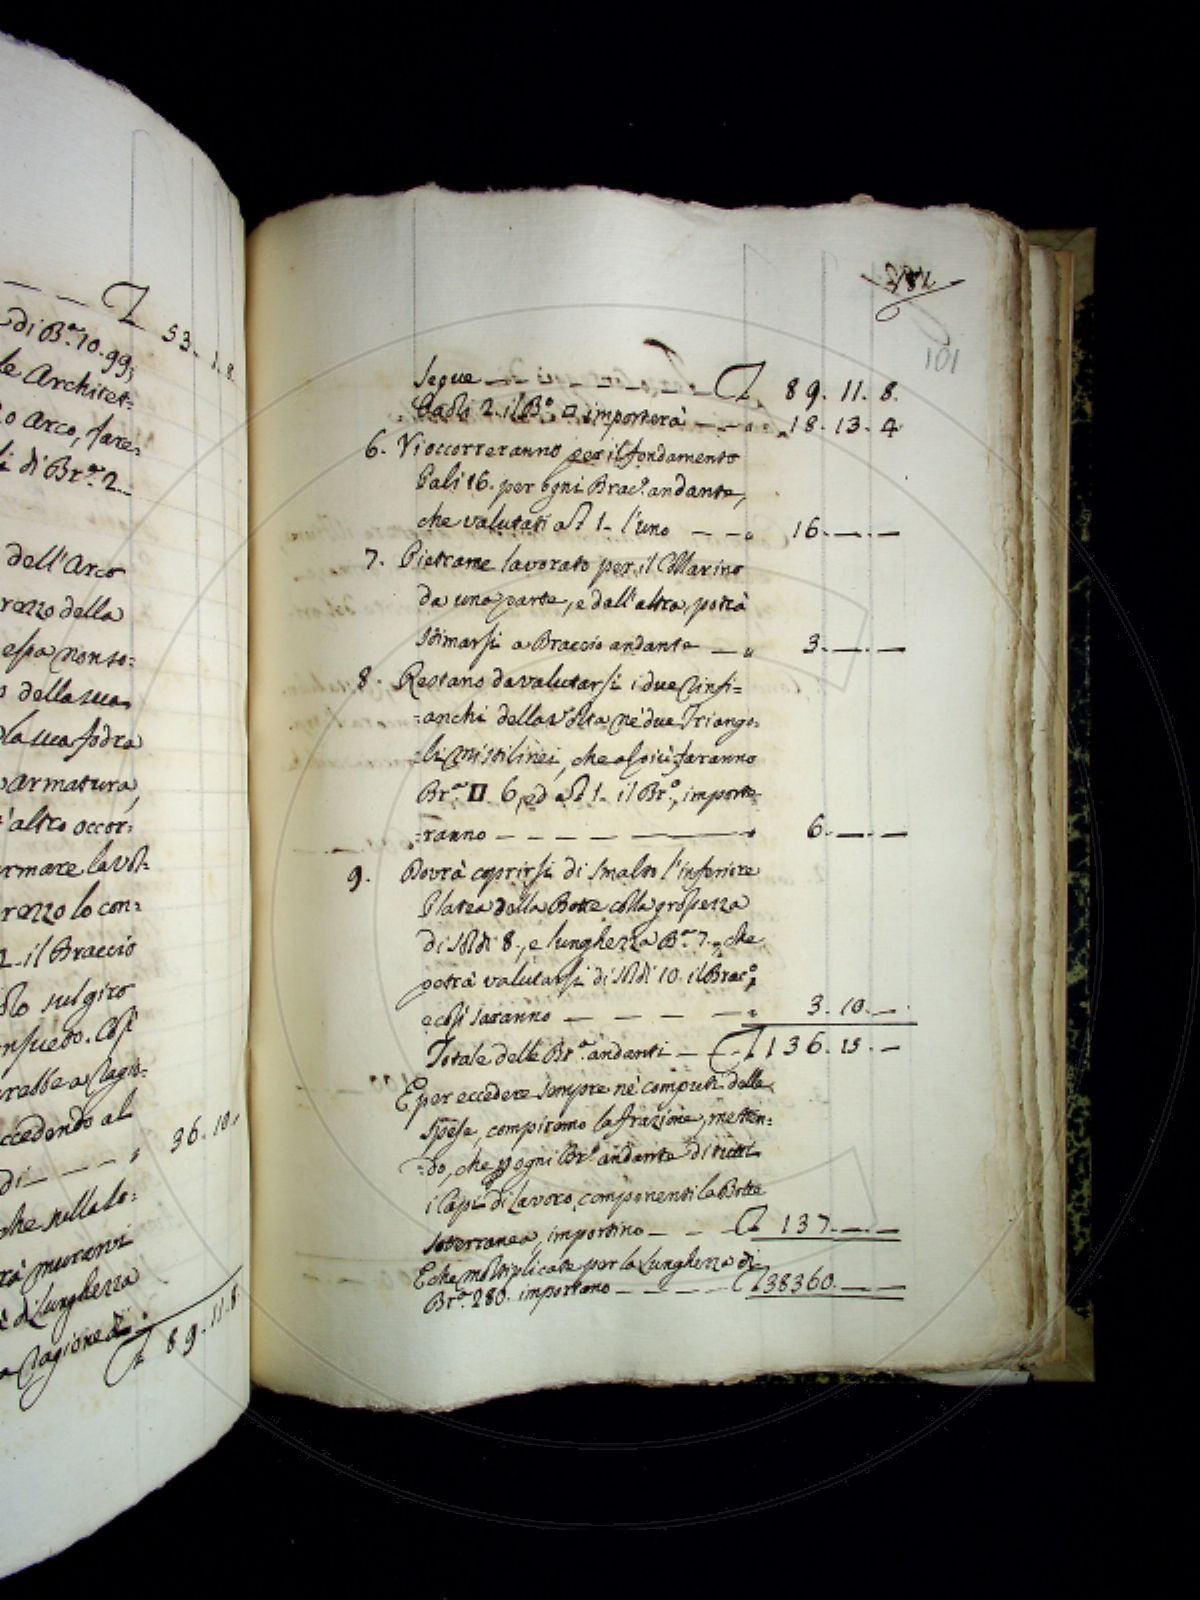 53. 1. 8.
di B.ª 10. 99;
le Architet=
o Arco, fare=
di Br.ª 2.
dell'Arco
rezzo della
essa non so=
della sua
la sua fodra
armatura,
altro occor=
rmare la vol=
rezzo lo con=
2. il Braccio
sul giro
nsueto. Così
rebbe a ragio=
ccedendo al
di — — — " 36. 10.
che sulla lo=
rà murarvi
di Lunghezza
a ragione di
£ 89. 11. 8.
101
Segue — — — — — £ 89. 11. 8.
Paoli 2. il B.º □ importerà — — " 18. 13. 4
6. Vi occorreranno per il fondamento
Pali 16. per ogni Brac.º andante,
che valutati a £ 1. l'uno — — " 16. — . —
7. Pietrame lavorato per il Marino
da una parte, e dall'altra, potrà
stimarsi a Braccio andante — " 3. — . —
8. Restano da valutarsi i due Rinfi=
=anchi della Volta nè due Triango=
=li mistilinei, che al più faranno
Br.ª □ 6, ed a £ 1. il Br.º, importe=
=ranno — — — — — " 6. — . —
9. Dovrà coprirsi di smalto l'inferiore
Platea della Botte colla grossezza
di soldi 8., e lunghezza B.ª 7., che
potrà valutarsi di soldi 10. il Brac.º,
e così saranno — — — — " 3. 10. —
Totale delle Br.ª andanti — £ 136. 15. —
E per eccedere sempre nè computi delle
spese, compiremo la frazione, metten=
=do, che p ogni Br.º andante di tutti
i Capi di Lavoro componenti la Botte
sotterranea, importino — — £ 137. — . —
E che moltiplicate per la Lunghezza di
Br.ª 280. importano — — — £ 38360. — . —